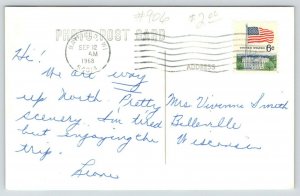 #906 $2.00
PHOTO POST CARD
SEP 12
AM
1968
ADDRESS
UNITED STATES
6¢
Hi!
We are way
up North. Pretty
scenery. I'm tired
but enjoying the
trip.
Mrs Vivian Smith
Belleville
Wisconsin